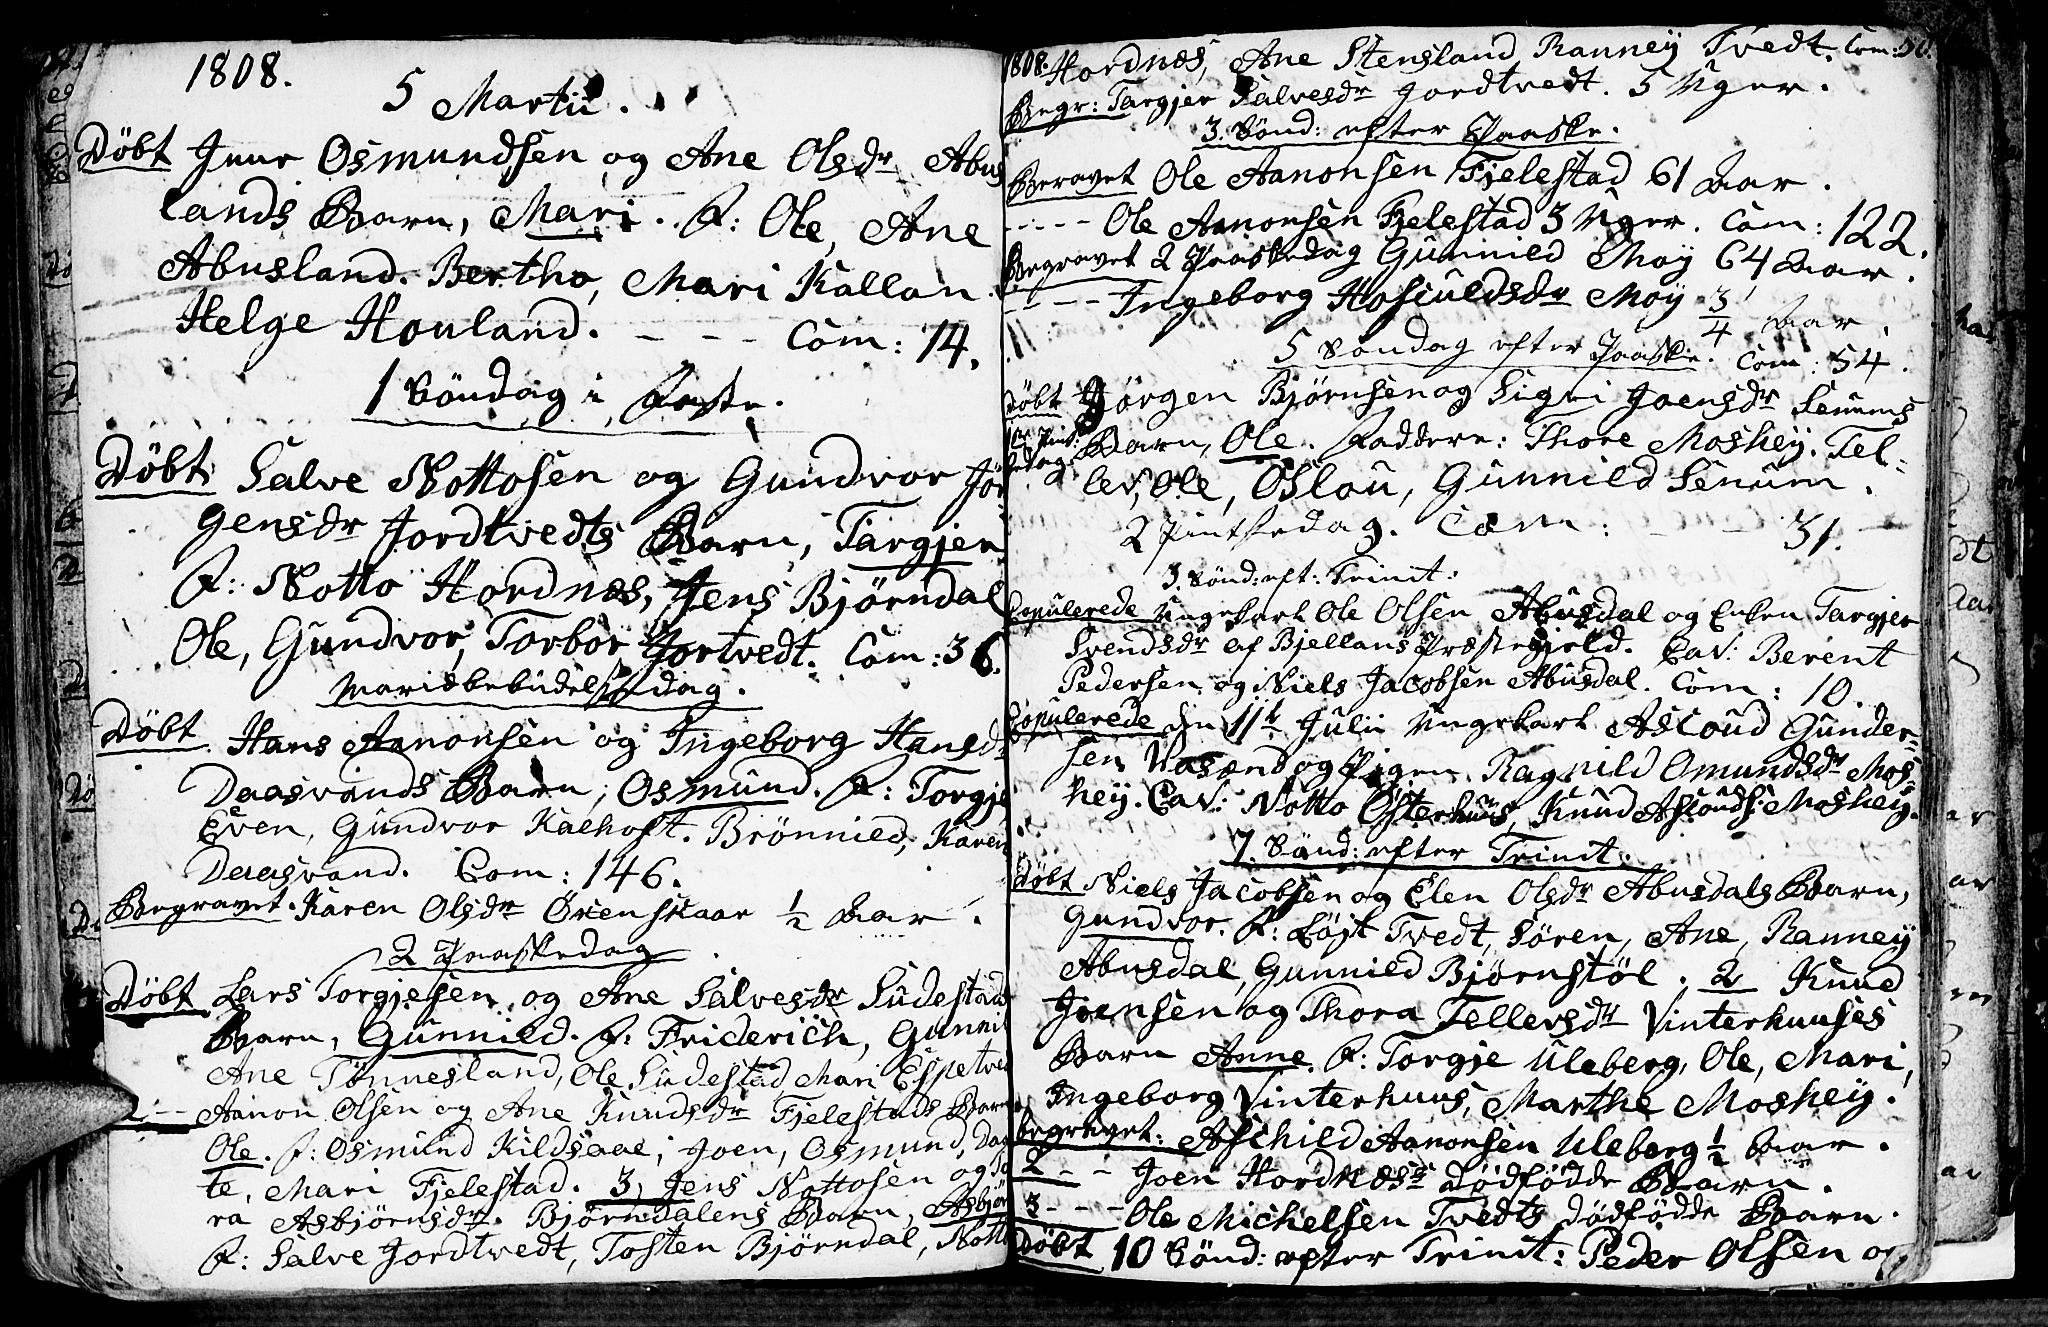 1808.
5 Martii.
Døbt Juur Osmundsen og Ane Olsdr Abus
lands Barn, Mari. F: Ole, Ane
Abusland. Bertho, Mari Kallan.
Helge Houland. - - - Com: 14.
1 Söndag i Faste.
Döbt Salve Nottosen og Gundvor Jör
gensdr Jordtvedts Barn, Targjer
F: Notto Hordnæs, Jens Bjørndal
Ole, Gundvor, Torbor Jortvedt. Com: 36.
Mariæbebudelsesdag.
Döbt Hans Aanonsen og Ingeborg Hansdr
Daasvands Barn, Osmund. F: Torgje
Even, Gundvor Kalhoft. Brönnild, Karen
Daasvand. Com: 146.
Begravet. Karen Olsdr Øxenskaar 1/2 Aar.
2 Paaskedag
Döbt Lars Torgjesen og Ane Salvesdr Sudestad
Barn, Gunnild. F: Friderich, Gunnil
Ane Tönnesland, Ole Sudestad Mari Espetved
2 -- Aanon Olsen og Ane Knudsdr Fjelestads Barn
Ole. F: Osmund Kildsaae, Joen, Osmund, Dag
te, Mari Fjelestad. 3, Jens Nottosen og Sa
ra Asbjörnsdr. Bjørndalens Barn, Asbjör
F: Salve Jordtvedt, Tosten Bjørndal, Notto
1808. Hordnæs, Ane Stensland Ranney Tvedt. Com: 50.
Begr: Targjer Salvesdr Jordtvedt. 5 Uger.
3. Sönd: efter Paaske.
Beravet Ole Aanonsen Fjelestad 61 Aar.
----- Ole Aanonsen Fjelestad 3 Uger. Com: 122.
Begravet 2 Paaskedag Gunnild Moy 64 Aar.
---- Ingeborg Hosculdsdr Moy 3/4 Aar.
5 Söndag efter Paaske. Com: 54.
Döbt Jörgen Bjørnsen og Sigri Joensdr Senums
1te Pint: Barn, Ole. Faddere: Thore Moshey. Tel-
sedag. lev, Ole, Oslou, Gunnild Senum.
2 Pintsedag. Com: - - 31.
3 Sönd: eft: Trinit:
Copulerede Ungekarl Ole Olsen Abusdal og Enken Targjer
Svendsdr af Bjellans Præstegield. Cav: Berent
Pedersen og Niels Jacobsen Abusdal. Com: 10.
Copulerede den 11te Julii Ungekarl Asloud Gunder-
sen Vasænd og Pigen Ragnild Omundsdr Mos-
hey. Cav: Notto Østerhuus, Knud Asloudss: Moshey.
7. Sönd: efter Trinit.
Døbt Niels Jacobsen og Elen Olsdr Abusdals Barn,
Gundvor. F: Löjt Tvedt, Sören, Ane, Ranney
Abusdal, Gunnild Bjørnstöl. 2 Knud
Joensen og Thora Tellevsdr Vinterhuuses
Barn Anne. F: Torgje Uleberg, Ole, Mari,
Ingeborg Vinterhuus, Marthe Moshey.
begravet: Aschild Aanonsen Uleberg 1/2 Aar.
2 -- Joen Hordnæss dödfödde Barn.
3 --- Ole Michelsen Tvedts dödfödde Barn.
Döbt 10 Sönd: efter Trinit: Peder Olsen og